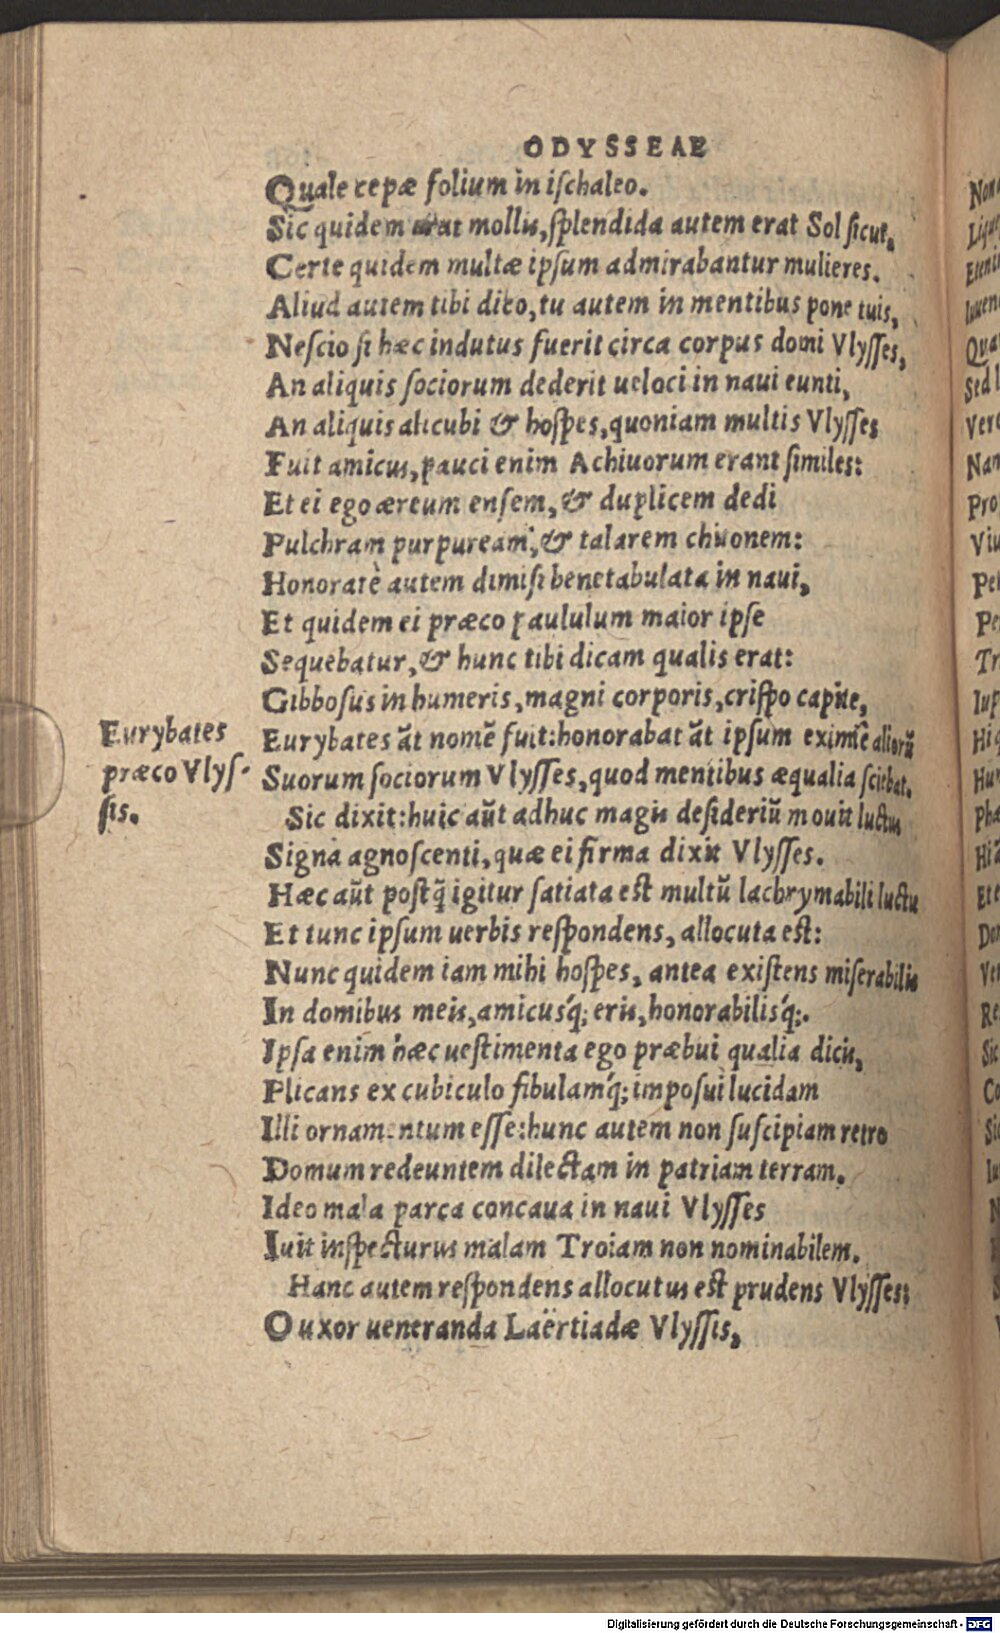 ODYSSEAE
Quale cepæ folium in iſchaleo.
Sic quidem erat mollis, ſplendida autem erat Sol ſicut,
Certe quidem multæ ipſum admirabantur mulieres.
Aliud autem tibi dico, tu autem in mentibus pone tuis,
Neſcio ſi hæc indutus fuerit circa corpus domi Vlyſſes,
An aliquis ſociorum dederit ueloci in naui eunti,
An aliquis alicubi & hoſpes, quoniam multis Vlyſſes
Fuit amicus, pauci enim Achiuorum erant ſimiles:
Et ei ego æreum enſem, & duplicem dedi
Pulchram purpuream, & talarem chitonem:
Honoratè autem dimiſi benetabulata in naui,
Et quidem ei præco paululum maior ipſe
Sequebatur, & hunc tibi dicam qualis erat:
Gibboſus in humeris, magni corporis, criſpo capite,
Eurybates
præco Vlyſ-
ſis.
Eurybates āt nomē fuit: honorabat āt ipſum eximiè aliorū
Suorum ſociorum Vlyſſes, quod mentibus æqualia ſciebat.
Sic dixit: huic aūt adhuc magis deſideriū mouit luctus
Signa agnoſcenti, quæ ei firma dixit Vlyſſes.
Hæc aūt poſtq̄ igitur ſatiata eſt multū lachrymabili luctu
Et tunc ipſum uerbis reſpondens, allocuta eſt:
Nunc quidem iam mihi hoſpes, antea exiſtens miſerabilis
In domibus meis, amicusq́; eris, honorabilisq́;.
Ipſa enim hæc ueſtimenta ego præbui qualia dicis,
Plicans ex cubiculo fibulamq́; impoſui lucidam
Illi ornamentum eſſe: hunc autem non ſuſcipiam retro
Domum redeuntem dilectam in patriam terram.
Ideo mala parca concaua in naui Vlyſſes
Iuit inſpecturus malam Troiam non nominabilem.
Hanc autem reſpondens allocutus eſt prudens Vlyſſes:
O uxor ueneranda Laërtiadæ Vlyſſis,
Digitalisierung gefördert durch die Deutsche Forschungsgemeinschaft - DFG